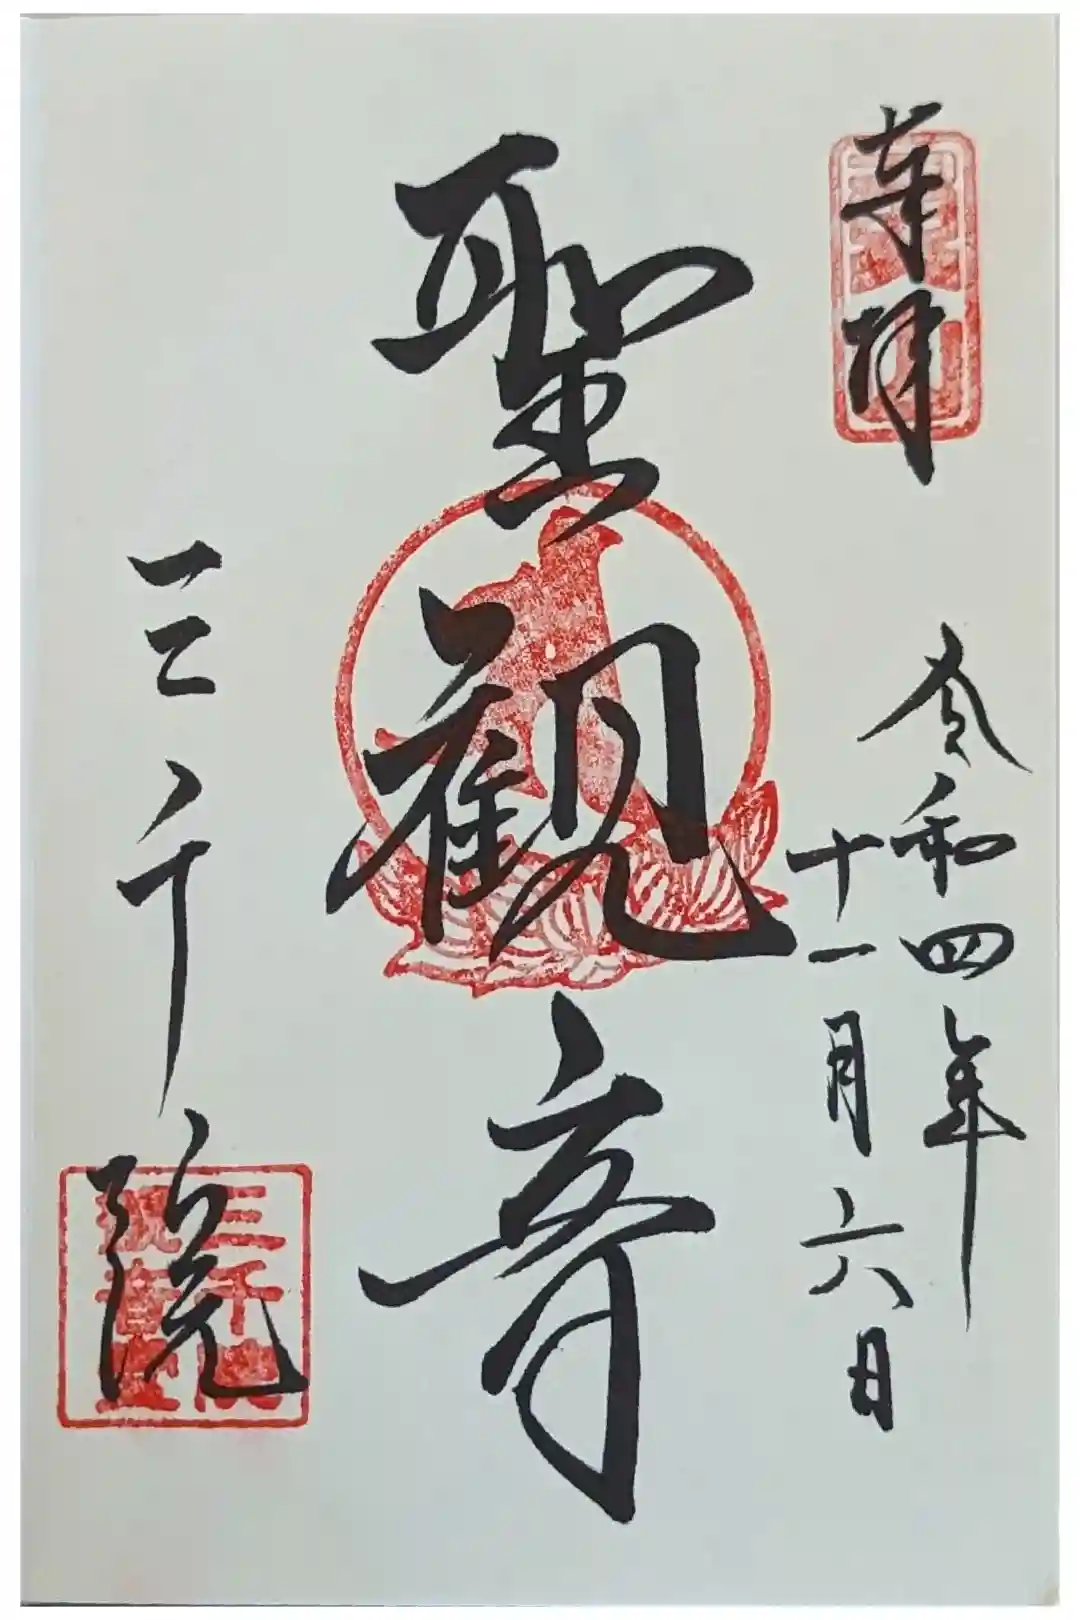 奉拝
令和四年
十一月六日
聖観音
三千院
三千院
観音堂